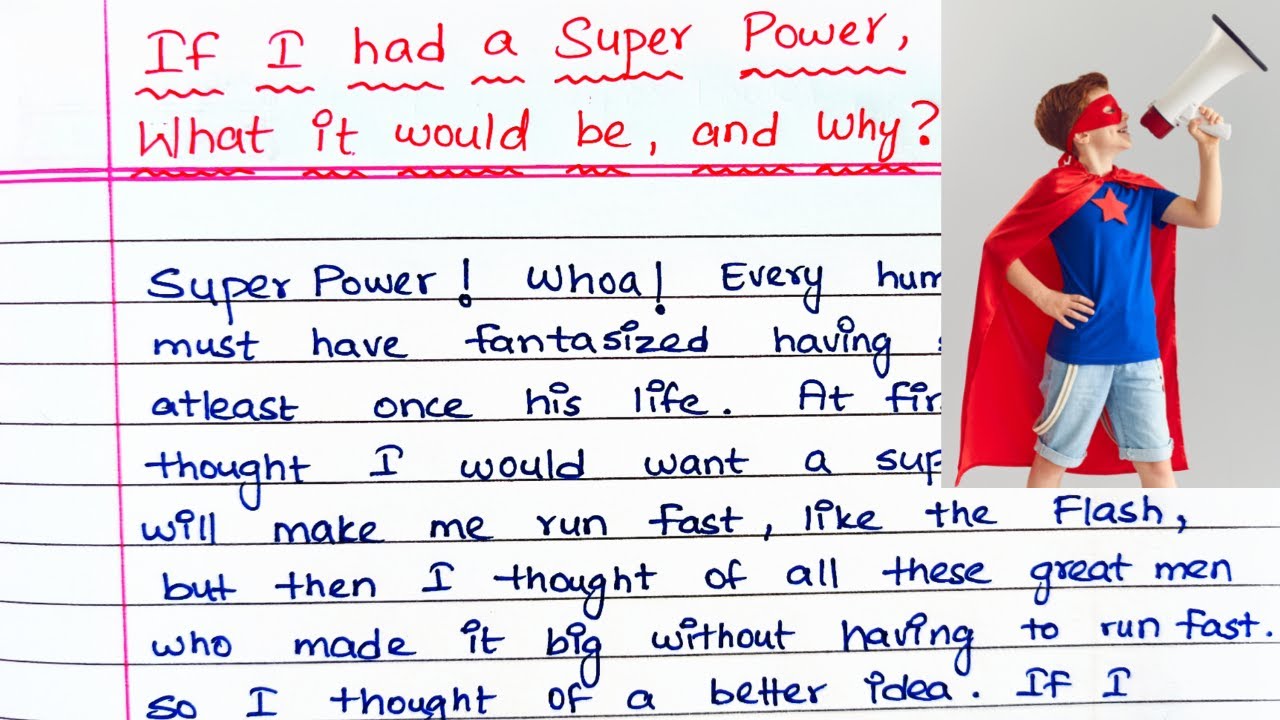 If I had a Super Power,
What it would be, and Why?
Super Power! Whoa! Every
must have fantasized having
atleast once his life. At
thought I would want a
will make me run fast, like the Flash,
but then I thought of all these great men
who made it big without having to run fast.
so I thought of a better idea. If I